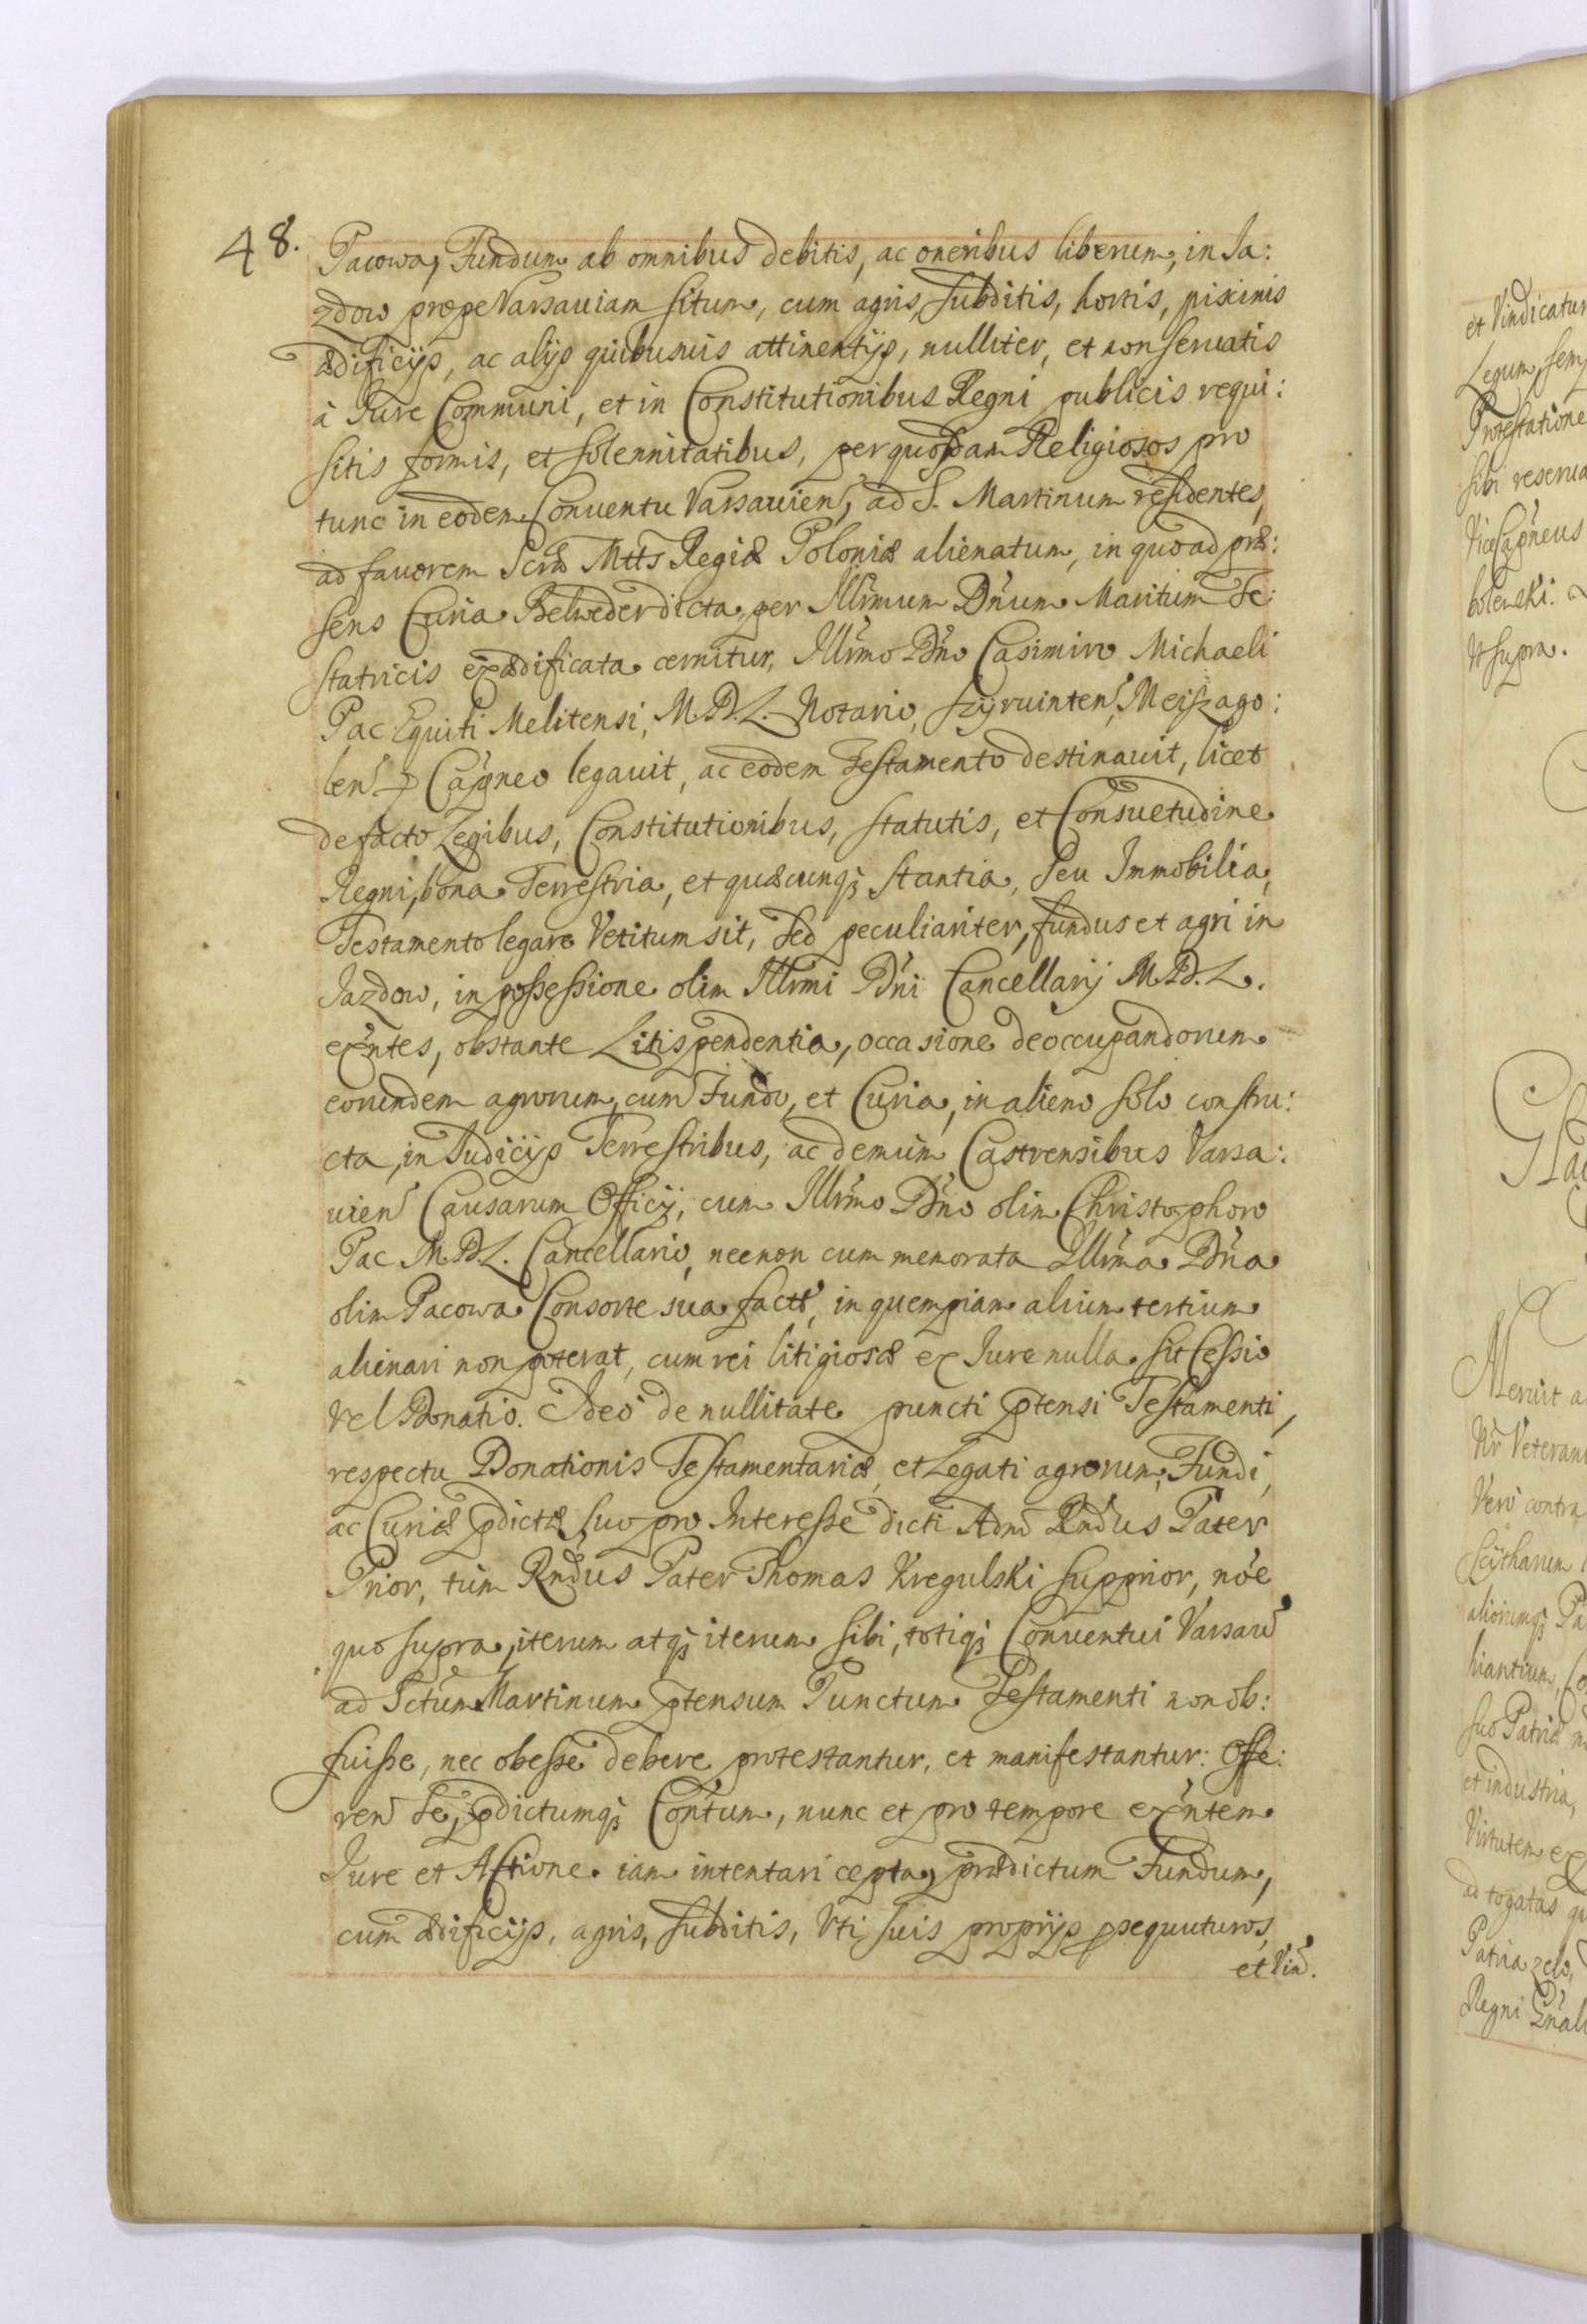 48.
Pacowa, Fundum ab omnibus debitis, ac oneribus liberum, in Ja:
zdow prope Varsauiam situm, cum agris, subditis, hortis, piscinis
ædificijs, ac alijs quibusuis attinentijs, nulliter, et non seruatis
à Iure Communi, et in Constitutionibus Regni publicis requi:
sitis formis, et solennitatibus, per quosdam Religiosos pro
tunc in eodem Conuentu Varsauien, ad S. Martinum residentes,
ad fauorem Scræ Mtts Regiæ Poloniæ alienatum, in quo ad præ:
sens Curia Belweder dicta, per Illrmum Dnum Maritum Te:
statricis exædificata cernitur, Illrmo Dno Casimiro Michaeli
Pac Equiti Melitensi, M.D.L. Notario, szyruinten, Meiszago:
len Capneo legauit, ac eodem Testamento destinauit, licet
de facto Legibus, Constitutionibus, statutis, et Consuetudine
Regni, bona Terrestria, et quæcunq; stantia, seu Immobilia,
Testamento legare Vetitum sit, sed peculiariter, fundus et agri in
Jazdow, in possessione olim Illrmi Dni Cancellarij M.D.L.
exntes, obstante Litispendentia, occasione deoccupandorum
eorundem agrorum, cum Fundo, et Curia, in alieno solo constru:
cta, in Iudicijs Terrestribus, ac demum Castrensibus Varsa:
uien Causarum Officij, cum Illrmo Dno olim Christophoro
Pac M.D.L. Cancellario, necnon cum memorata Illrma Dna
olim Pacowa Consorte sua factæ, in quempiam alium tertium
alienari non poterat, cum rei litigiosæ ex Iure nulla sit Cessio
vel Donatio. Adeo de nullitate puncti ptensi Testamenti,
respectu Donationis Testamentariæ, et Legati agrorum, Fundi,
ac Curiæ pdictæ, suo pro Interesse dicti Adm Rndus Pater
Prior, tum Rndus Pater Thomas Kregulski supprior, noe
quo supra, iterum atq; iterum sibi, totiq; Conuentui Varsau
ad Sctum Martinum ptensum Punctum Testamenti non ob:
fuisse, nec obesse debere protestantur, et manifestantur: Offe:
ren se, pdictumq; Contum, nunc et pro tempore exntem
Iure et Actione iam intentari cepta, prædictum Fundum,
cum ædificijs, agris, subditis, Vti suis proprijs psequuturos,
et Vin.
et Vindicatur
Legum, sem
Protestatione
sibi reserua
ViceCapneus
bolenski:
Vt supra.
Meruit a
Nr Veteran
Vero contra
Scytharum
aliorumq; Pa
hiantium, Co
suo Patriæ
et industria,
Virtutem ex
ad togatas qu
Patria zelo,
Regni Gnal